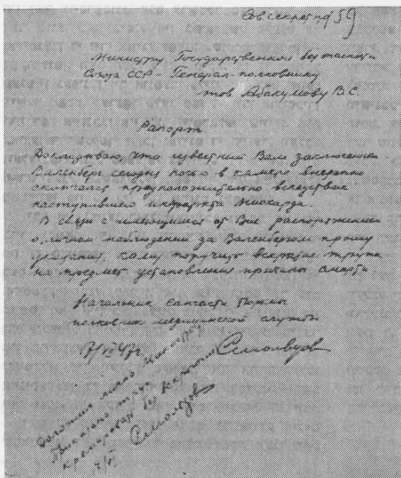 Сов секретно
Министру Государственной безопасности
Союза ССР – Генерал-полковнику
тов Абакумову В.С.
Рапорт
Докладываю, что известный Вам заключенный
Валенберг сегодня ночью в камере внезапно
скончался предположительно вследствие
наступившего инфаркта миокарда.
В связи с имеющимся от Вас распоряжением
о личном наблюдении за Валенбергом прошу
указания, кому поручить вскрытие трупа
на предмет установления причины смерти
Начальник санчасти тюрьмы
полковник медицинской службы
Смольцов
17/VII 47г.
Доложил лично министру
Приказано труп
кремировать без вскрытия
17/VII
Смольцов